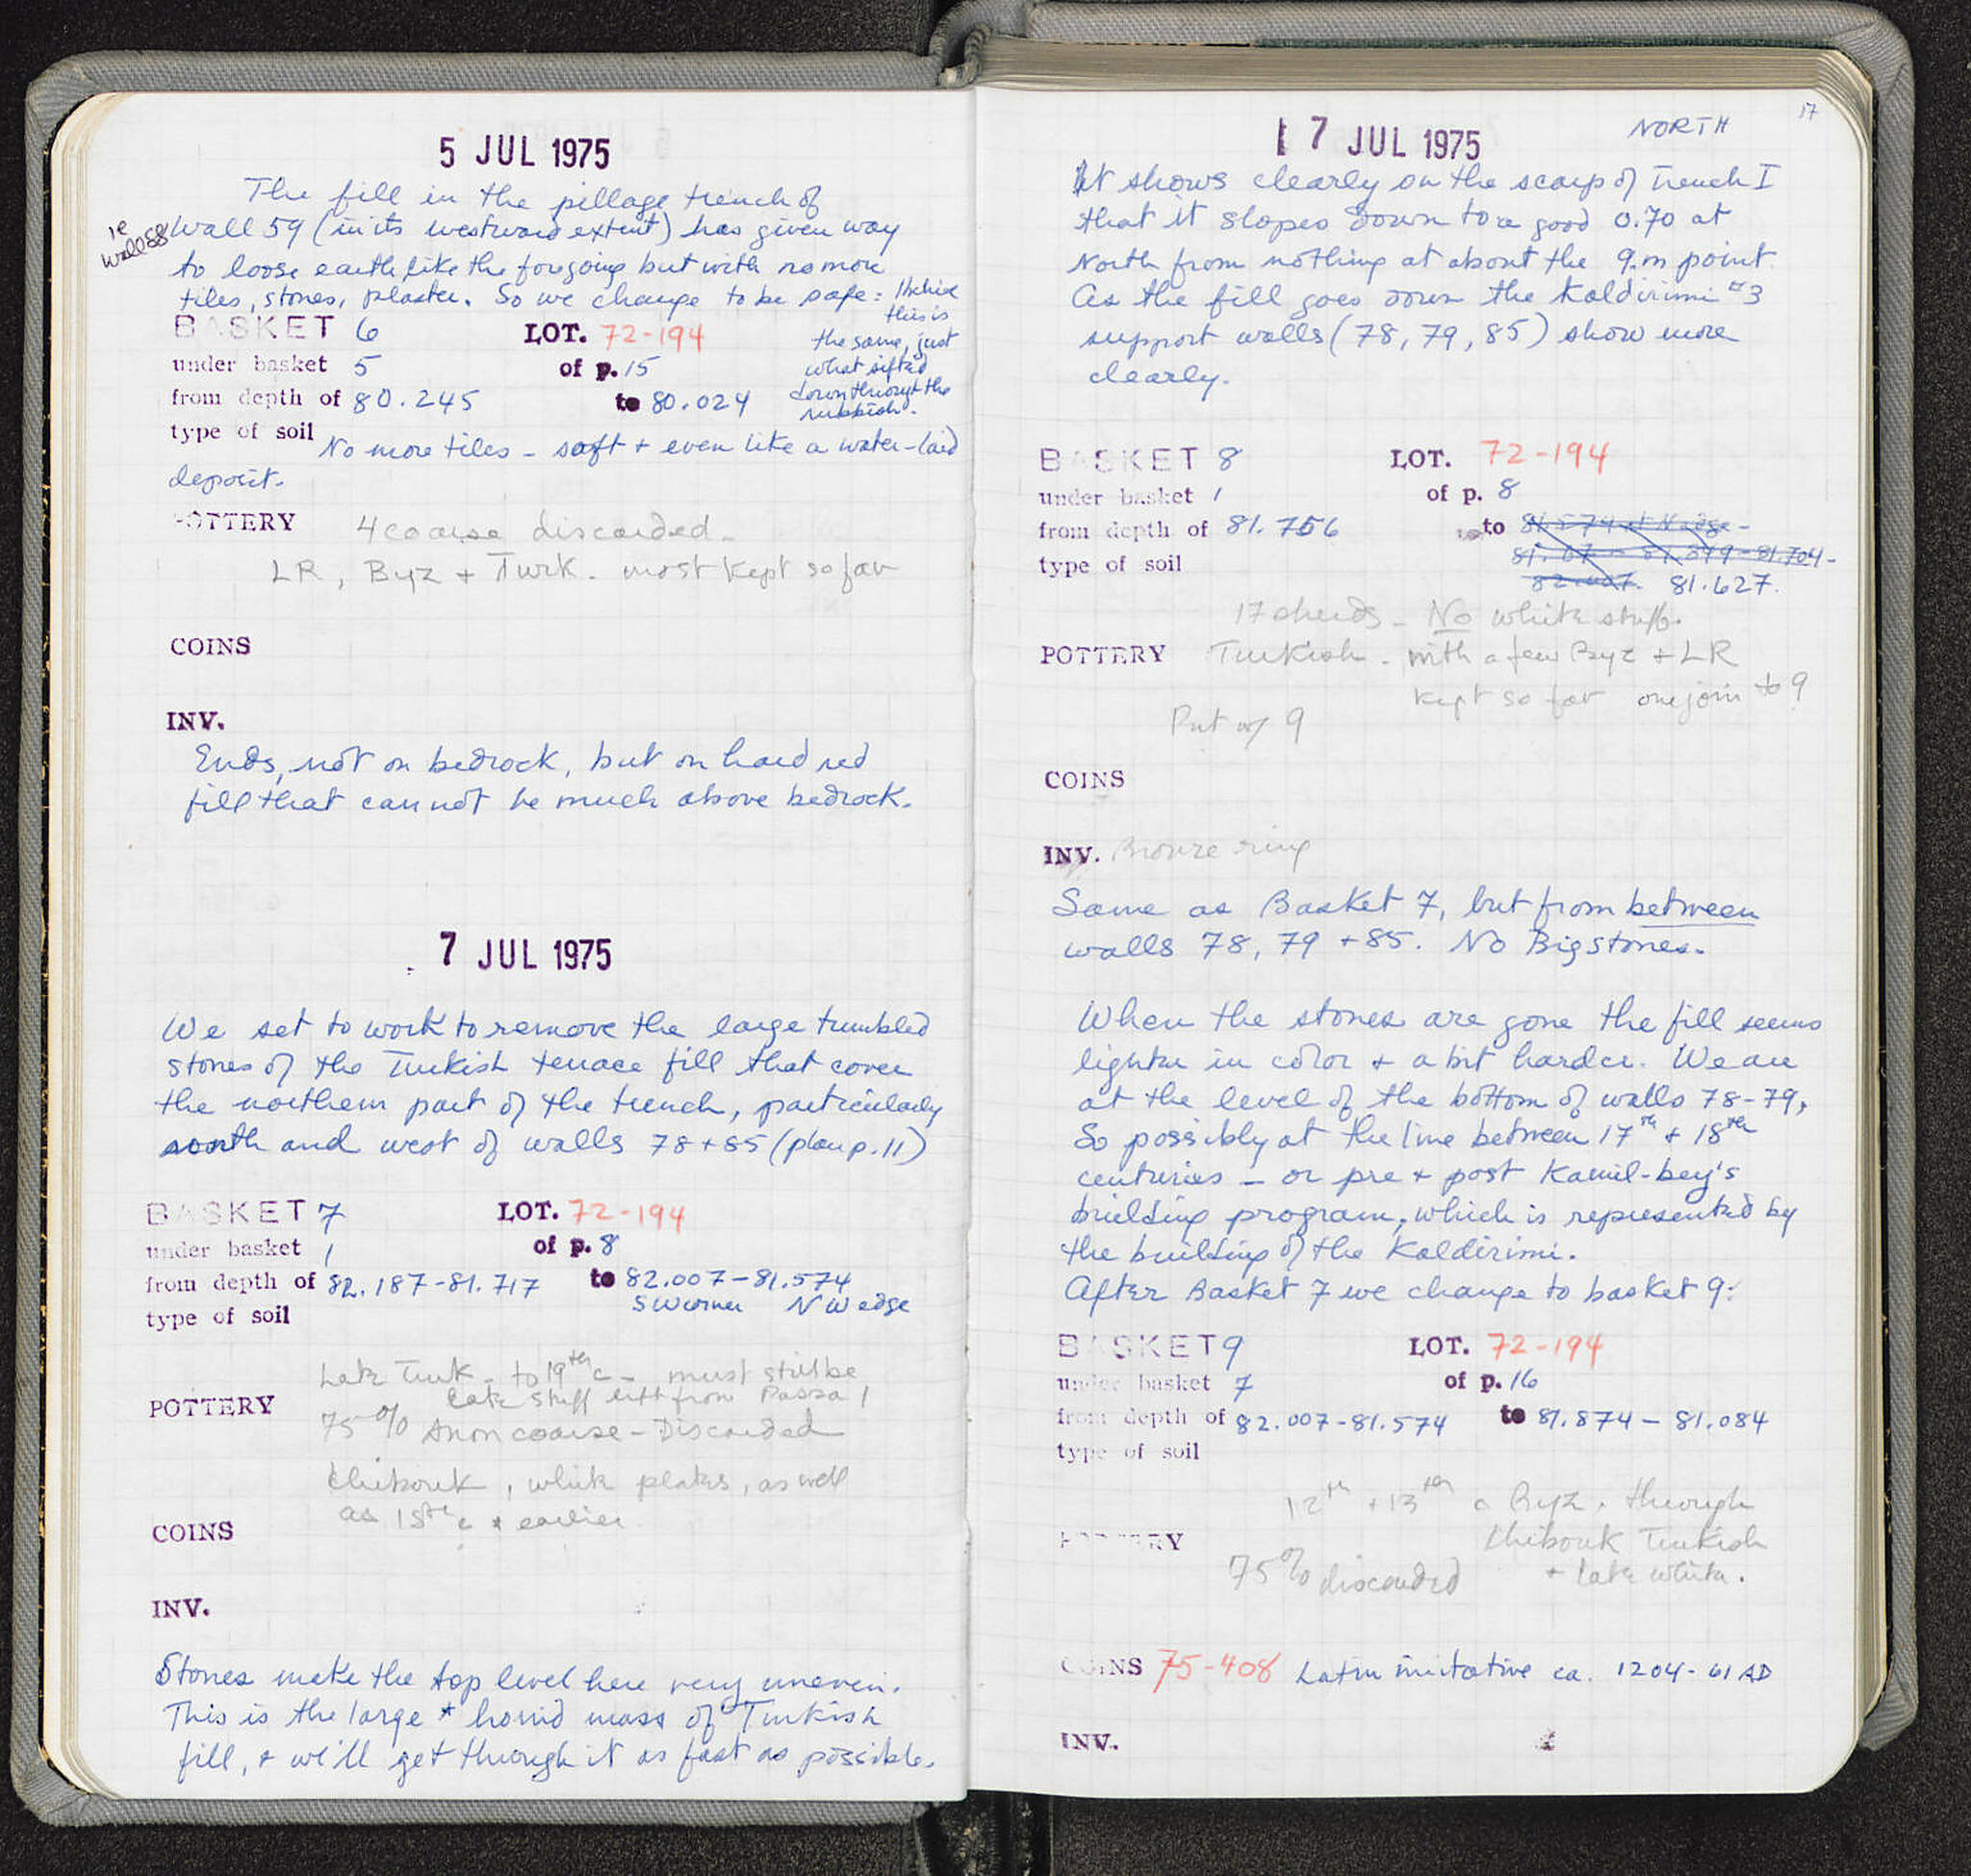 5 JUL 1975
The fill in the pillage trench of
ie wall 58
Wall 59 (in its westward extent) has given way
to loose earth, like the foregoing but with no more
tiles, stones, plaster. So we change to be safe: I believe
this is
the same, just
what sifted
down through the
rubbish.
BASKET 6 LOT. 72-194
under basket 5 of p. 15
from depth of 80.245 to 80.024
type of soil No more tiles - soft + even like a water-laid
deposit.
POTTERY 4 coarse discarded -
LR, Byz + Turk. most kept so far
COINS
INV.
Ends, not on bedrock, but on hard red
fill that cannot be much above bedrock.
7 JUL 1975
We set to work to remove the large tumbled
stones of the Turkish terrace fill that cover
the northern part of the trench, particularly
north and west of walls 78 + 85 (plan p. 11)
BASKET 7 LOT. 72-194
under basket 1 of p. 8
from depth of 82.187-81.717 to 82.007-81.574
SW corner NW edge
type of soil
Late Turk - to 19th c - must still be
late stuff left from Passa 1
POTTERY 75% Anon coarse - Discarded
Chibouk, white plates, as well
as 18th c + earlier
COINS
INV.
Stones make the top level here very uneven.
This is the large + horrid mass of Turkish
fill, + we'll get through it as fast as possible.
17
NORTH
7 JUL 1975
It shows clearly on the scarp of Trench I
that it slopes down to a good 0.70 at
North from nothing at about the 9.m point.
As the fill goes down the Kaldirimi #3
support walls (78, 79, 85) show more
clearly.
BASKET 8 LOT. 72-194
under basket 1 of p. 8
from depth of 81.756 to 81.574 at N edge -
81.704 -
82.007. 81.627.
type of soil
17 sherds - No white stuff.
POTTERY Turkish - with a few Byz + LR
kept so far one join to 9
Put w/ 9
COINS
INV. Bronze ring
Same as Basket 7, but from between
walls 78, 79 + 85. No Big stones.
When the stones are gone the fill seems
lighter in color + a bit harder. We are
at the level of the bottom of walls 78-79,
So possibly at the line between 17th + 18th
centuries - or pre + post Kamil-bey's
building program, which is represented by
the building of the Kaldirimi.
After Basket 7 we change to basket 9:
BASKET 9 LOT. 72-194
under basket 7 of p. 16
from depth of 82.007-81.574 to 81.874 - 81.084
type of soil
12th + 13th c Byz. through
POTTERY chibouk Turkish
75% discarded + late white.
COINS 75-408 Latin imitative ca. 1204-61 AD
INV.